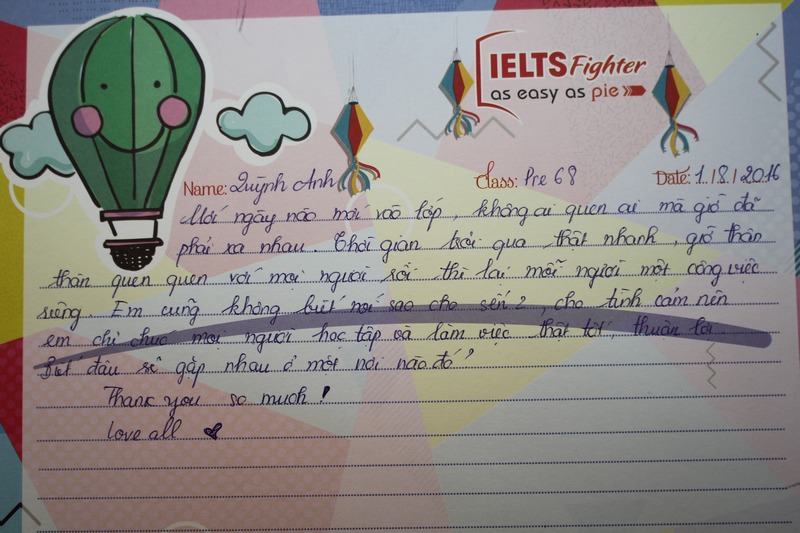 IELTS Fighter
as easy as pie
Name: Quỳnh Anh Class: Pre 68 Date: 1/8/2016
Mới ngày nào mới vào lớp, không ai quen ai mà giờ đã
phải xa nhau. Thời gian trôi qua thật nhanh, giờ thân
thân quen quen với mọi người rồi thì lại mỗi người một công việc
riêng. Em cũng không biết nói sao cho sến 2, cho tình cảm nên
em chỉ chúc mọi người học tập và làm việc thật tốt, thuận lợi
Biết đâu sẽ gặp nhau ở một nơi nào đó!
Thank you so much!
Love all